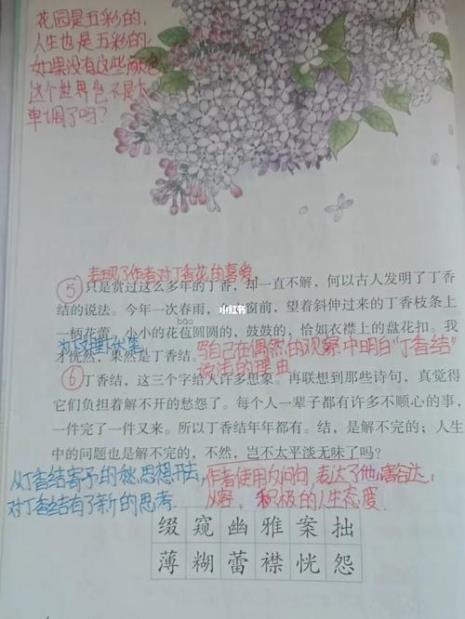 花园是五彩的,
人生也是五彩的,
如果没有这些颜色
这个世界岂不是太
单调了吗?
表现了作者对丁香花的喜爱
⑤只是赏过这么多年的丁香,却一直不解,何以古人发明了丁香
结的说法。今年一次春雨,窗前,望着斜伸过来的丁香枝条上
小红书
一柄花蕾。小小的花苞圆圆的,鼓鼓的,恰如衣襟上的盘花扣。我
bāo
才恍然,果然是丁香结。
写自己在偶然的观察中明白"丁香结"
说法的理由
⑥丁香结,这三个字给人许多想象。再联想到那些诗句,真觉得
它们负担着解不开的愁怨了。每个人一辈子都有许多不顺心的事,
一件完了一件又来。所以丁香结年年都有。结,是解不完的;人生
中的问题也是解不完的,不然,岂不太平淡无味了吗?
从丁香结寄予的愁思想开去,
对丁香结有了新的思考.
作者使用反问句,表达了他豁达、
从容,积极的人生态度.
缀窥幽雅案拙
薄糊蕾襟恍怨